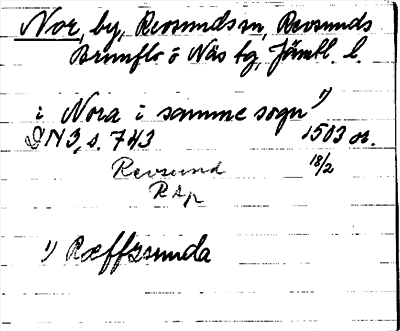 Nor, by, Revsunds sn, Revsunds
Brunflo o Näs tg, Jämtl. l.
i Nora i samme sogn 1)
DN 3, s. 743 1503 or.
Revsund 18/2
RAp
1) Ræffzsunda